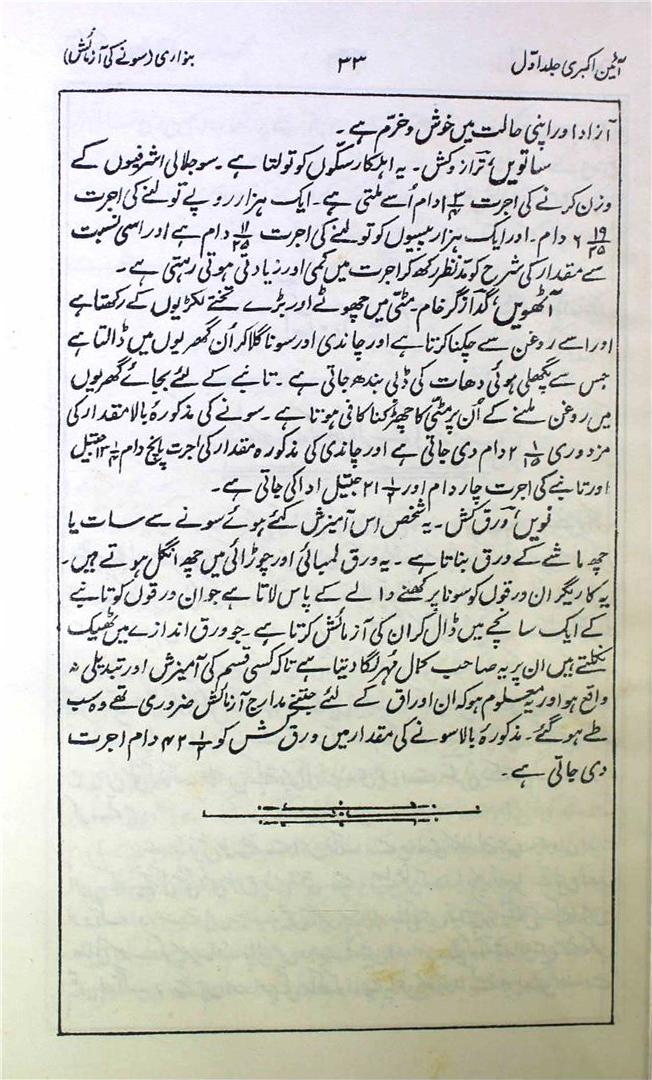 آئین اکبری جلد اوّل
۳۳
بنواری (سونے کی آزمائش)
آزاد اور اپنی حالت میں خوش و خرّم ہے۔
ساتویں، ترازو کش۔ یہ اہلکار سکّوں کو تولتا ہے۔ سو جلالی اشرفیوں کے
وزن کرنے کی اجرت دام اُسے ملتی ہے۔ ایک ہزار روپے تولنے کی اجرت
۶ ۱۹/۲۵ دام۔ اور ایک ہزار پیسوں کو تولنے کی اجرت ۱۱/۲۵ دام ہے اور اسی نسبت
سے مقدار کی شرح کو مدّنظر رکھ کر اجرت میں کمی اور زیادتی ہوتی رہتی ہے۔
آٹھویں، گداز گر خام۔ مٹّی میں چھوٹے اور بڑے تختے لکڑیوں کے رکھتا ہے
اور اسے روغن سے چکنا کرتا ہے اور چاندی اور سونا گلا کر اُن گھریوں میں ڈالتا ہے
جس سے پگھلی ہوئی دھات کی ڈلی بندھ جاتی ہے۔ تانبے کے لئے بجائے گھریوں
میں روغن ملنے کے اُن پر مٹّی کا چھڑکنا کافی ہوتا ہے۔ سونے کی مذکورہ بالا مقدار کی
مزدوری ۲ دام دی جاتی ہے اور چاندی کی مذکورہ مقدار کی اجرت پانچ دام ۱۳ جیتل
اور تانبے کی اجرت چار دام اور ۲۱ جیتل ادا کی جاتی ہے۔
نویں، ورق کش۔ یہ شخص اس آمیزش کئے ہوئے سونے سے سات یا
چھ ماشے کے ورق بناتا ہے۔ یہ ورق لمبائی اور چوڑائی میں چھ انگل ہوتے ہیں۔
یہ کاریگر ان ورقوں کو سونا پرکھنے والے کے پاس لاتا ہے جو ان ورقوں کو تانبے
کے ایک سانچے میں ڈال کر ان کی آزمائش کرتا ہے۔ جو ورق اندازے میں ٹھیک
نکلتے ہیں ان پر یہ صاحب کمال مُہر لگا دیتا ہے تاکہ کسی قسم کی آمیزش اور تبدیلی نہ
واقع ہو اور یہ معلوم ہو کہ ان اوراق کے لئے جتنے مدارج آزمائش ضروری تھے وہ سب
طے ہو گئے۔ مذکورۂ بالا سونے کی مقدار میں ورق کش کو ۴۲ دام اجرت
دی جاتی ہے۔